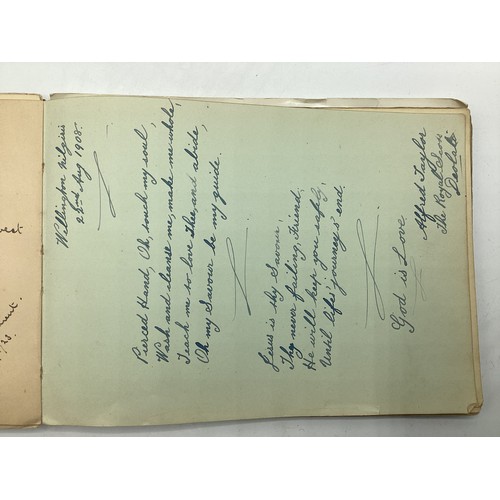 Wellington Nilgiris
22nd Aug 1908.
Pierced Hand, Oh, touch my soul,
Wash and cleanse me, make me whole,
Teach me to love Thee, and abide,
Oh my Saviour be my guide.
Jesus is thy Saviour,
Thy never failing Friend.
He will keep you safely,
Until life's journey's end.
God is Love
Alfred Taylor
The Royal Scots
Deolali
vest
ment.